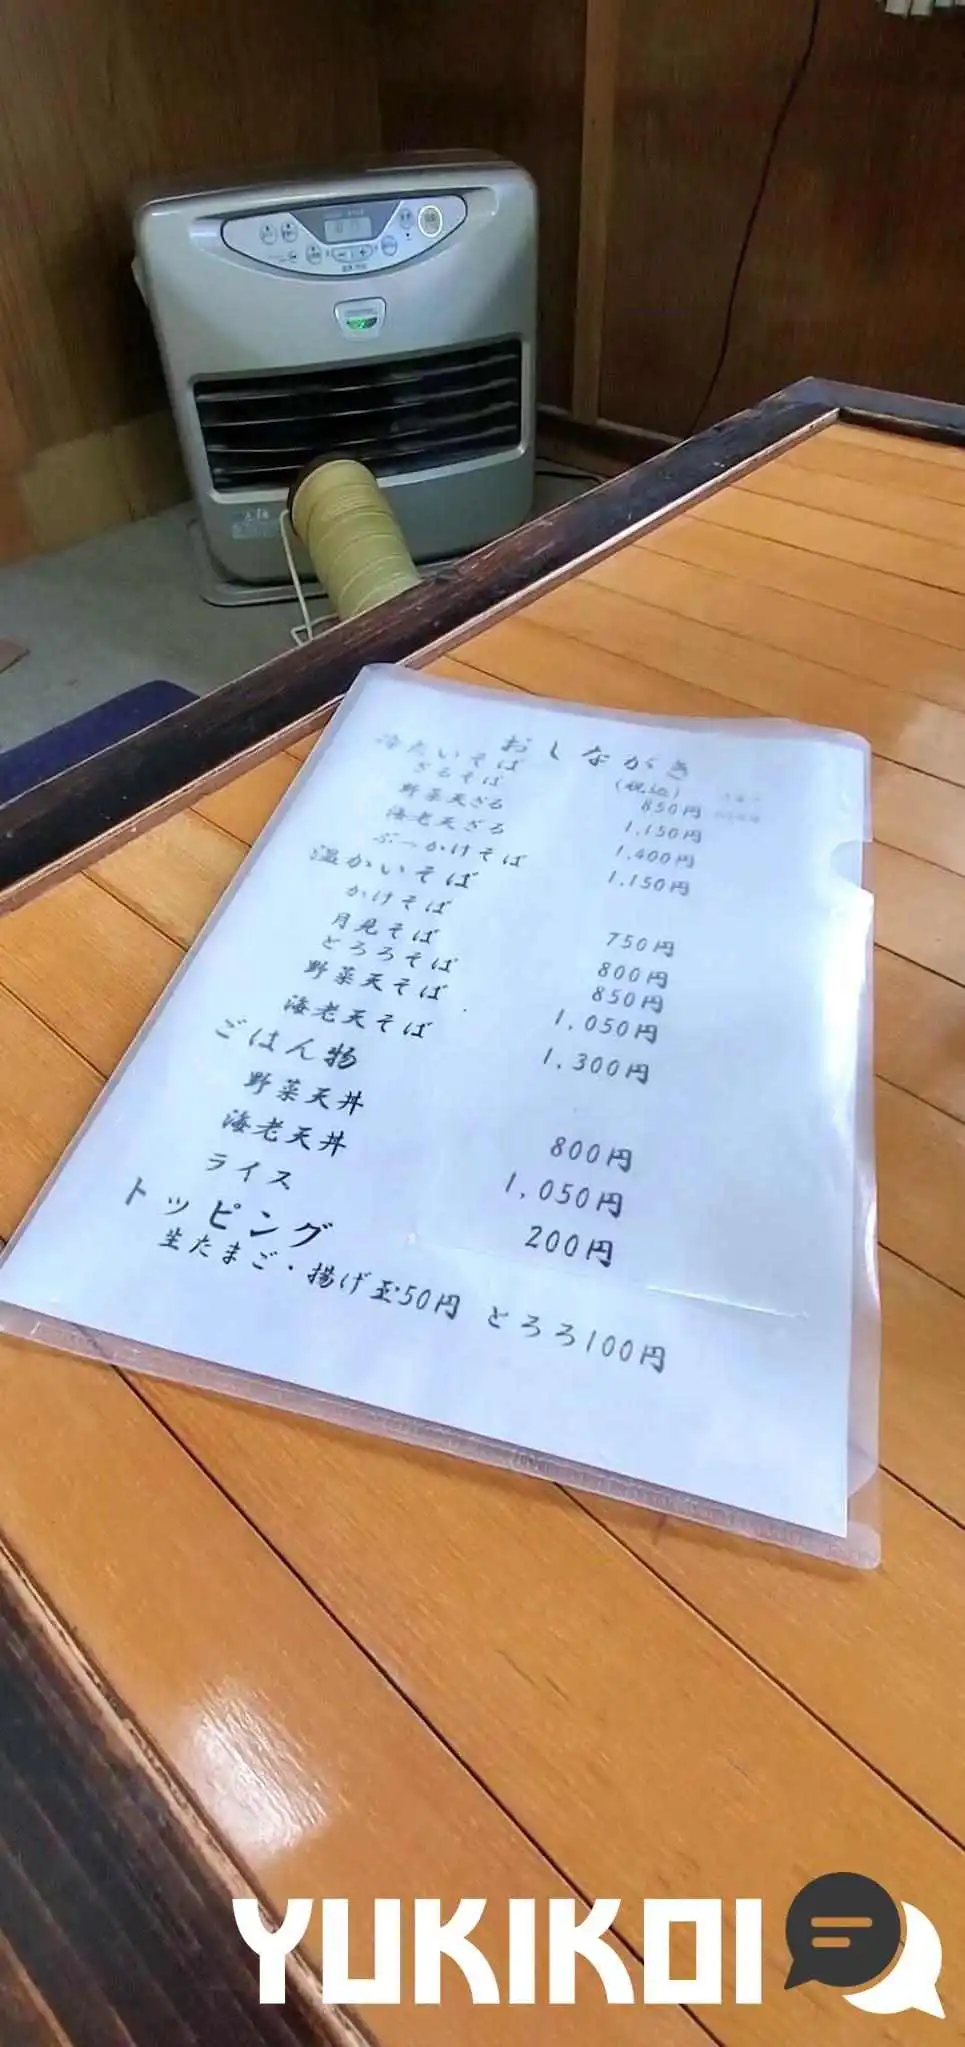 おしながき
(税込)
冷たいそば
ざるそば 850円
野菜天ざる 1,150円
海老天ざる 1,400円
ぶっかけそば 1,150円
温かいそば
かけそば 750円
月見そば 800円
とろろそば 850円
野菜天そば 1,050円
海老天そば 1,300円
ごはん物
野菜天丼 800円
海老天丼 1,050円
ライス 200円
トッピング
生たまご・揚げ玉50円 とろろ100円
YUKIKOI